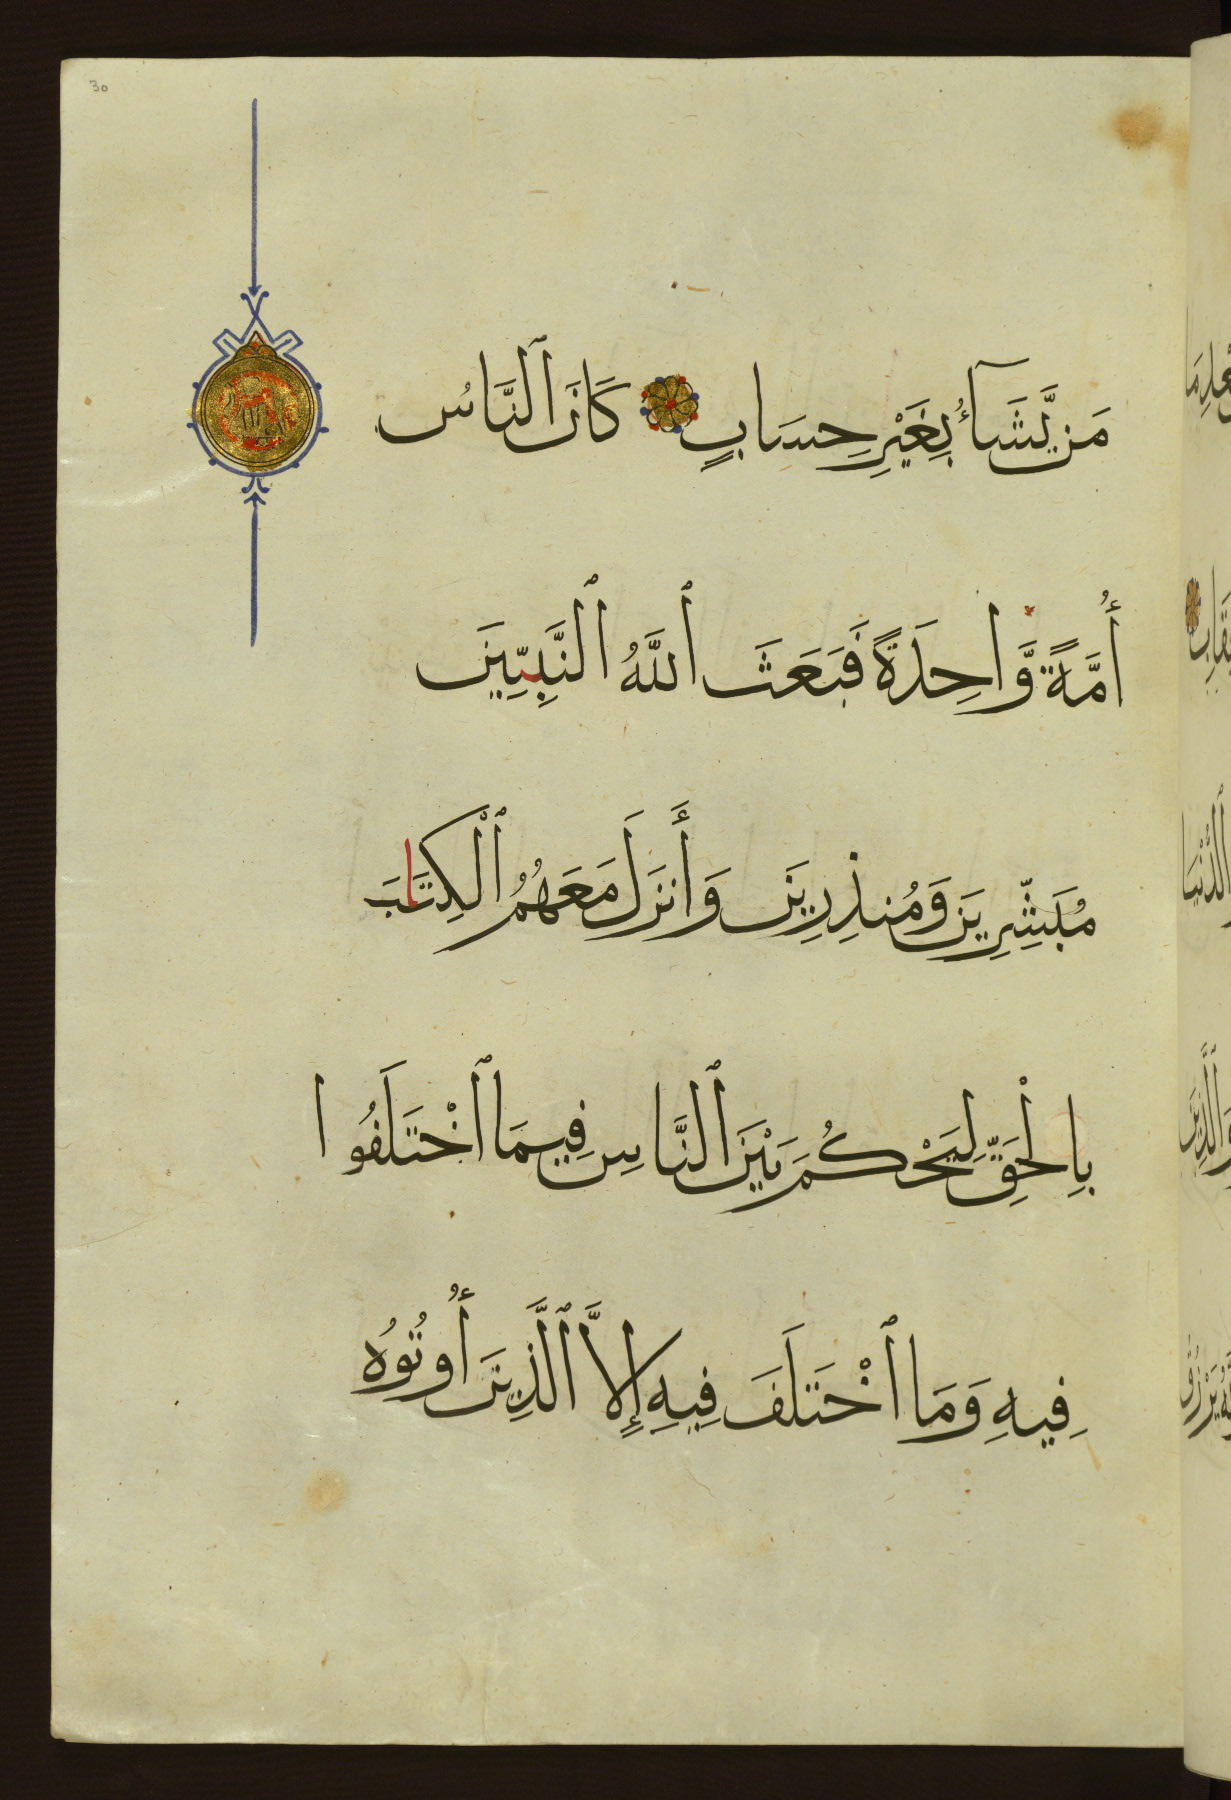 30
مَن يَّشَآءُ بِغَيْرِ حِسَابٍ كَانَ ٱلنَّاسُ
أُمَّةً وَّاحِدَةً فَبَعَثَ ٱللَّهُ ٱلنَّبِيِّينَ
مُبَشِّرِينَ وَمُنذِرِينَ وَأَنزَلَ مَعَهُمُ ٱلْكِتَابَ
بِالْحَقِّ لِيَحْكُمَ بَيْنَ ٱلنَّاسِ فِيمَا ٱخْتَلَفُوا
فِيهِ وَمَا ٱخْتَلَفَ فِيهِ إِلَّا ٱلَّذِينَ أُوتُوهُ